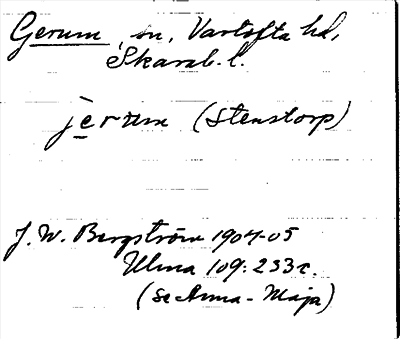 Gerum, sn, Vartofta hd,
Skarab. l.
jerum (Stenstorp)
J. W. Bergström 1904-05
Ulma 109: 233 r.
(se Anna-Maja)